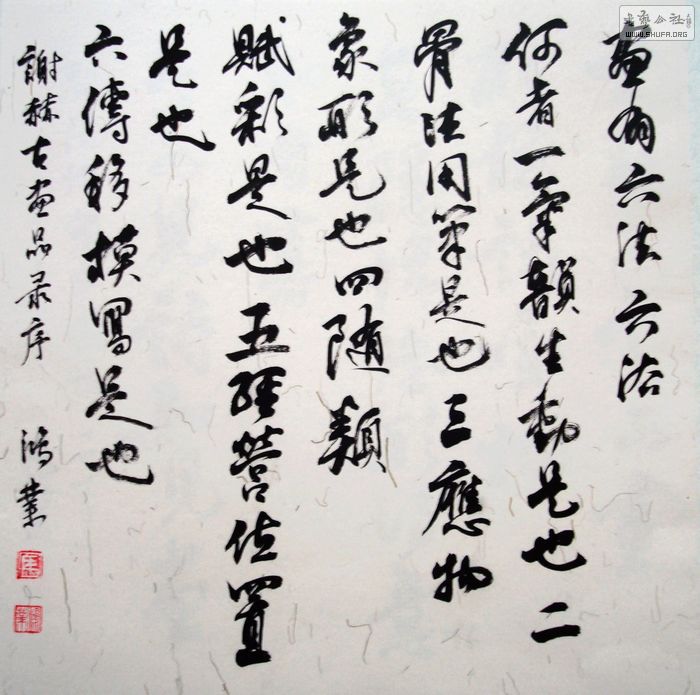 畫有六法六法
何者一氣韻生動是也二
骨法用筆是也三應物
象形是也四随類
賦彩是也五經營位置
是也
六傳移模寫是也
謝赫古畫品录序 鴻業
书艺公社
WWW.SHUFA.ORG